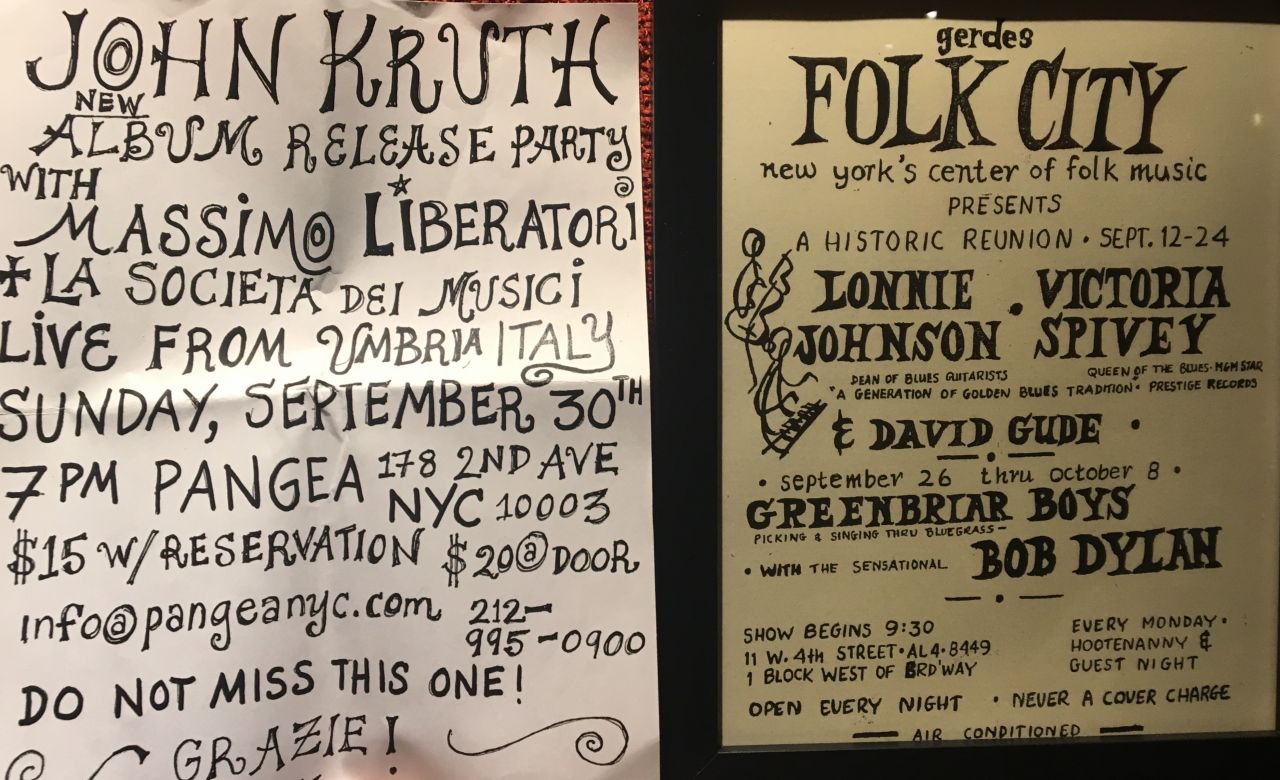 JOHN KRUTH
NEW
ALBUM RELEASE PARTY
WITH
MASSIMO LIBERATORI
+ LA SOCIETÀ DEI MUSICI
LIVE FROM UMBRIA ITALY
SUNDAY, SEPTEMBER 30TH
7PM PANGEA 178 2ND AVE
NYC 10003
$15 W/RESERVATION $20@DOOR
info@pangeanyc.com 212-
995-0900
DO NOT MISS THIS ONE!
GRAZIE!
gerdes
FOLK CITY
new york's center of folk music
PRESENTS
A HISTORIC REUNION • SEPT. 12-24
LONNIE • VICTORIA
JOHNSON SPIVEY
DEAN OF BLUES GUITARISTS QUEEN OF THE BLUES • MGM STAR
"A GENERATION OF GOLDEN BLUES TRADITION" • PRESTIGE RECORDS
& DAVID GUDE •
• september 26 thru october 8 •
GREENBRIAR BOYS
PICKING & SINGING THRU BLUEGRASS—
• WITH THE SENSATIONAL BOB DYLAN
SHOW BEGINS 9:30
11 W. 4th STREET • AL4-8449
1 BLOCK WEST OF BRD'WAY
EVERY MONDAY •
HOOTENANNY &
GUEST NIGHT
OPEN EVERY NIGHT • NEVER A COVER CHARGE
AIR CONDITIONED